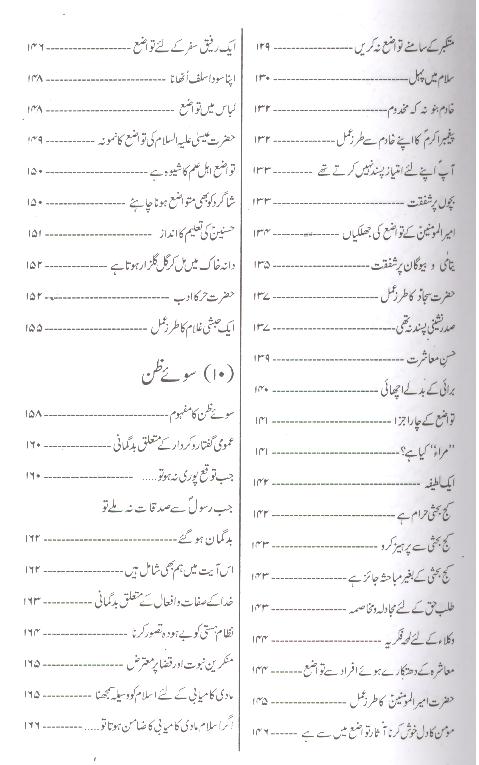 متکبر کے سامنے تواضع نہ کریں ---------- ۱۲۹
سلام میں پہل ---------- ۱۳۰
خادم بنو نہ کہ مخدوم ---------- ۱۳۲
پیغمبر اکرمؐ کا اپنے خادم سے طرز عمل ---------- ۱۳۲
آپؐ اپنے لئے امتیاز پسند نہیں کرتے تھے ---------- ۱۳۳
بچوں پر شفقت ---------- ۱۳۳
امیر المومنینؑ کے تواضع کی جھلکیاں ---------- ۱۳۴
یتامٰی و بیوگان پر شفقت ---------- ۱۳۵
حضرت سجادؑ کا طرز عمل ---------- ۱۳۷
صدر نشینی پسند نہ تھی ---------- ۱۳۷
حسنِ معاشرت ---------- ۱۳۹
برائی کے بدلے اچھائی ---------- ۱۴۰
تواضع کے چار اجزا ---------- ۱۴۱
"مراء" کیا ہے؟ ---------- ۱۴۱
ایک لطیفہ ---------- ۱۴۲
کج بحثی حرام ہے ---------- ۱۴۲
کج بحثی سے پرہیز کرو ---------- ۱۴۳
کج بحثی کے بغیر مباحثہ جائز ہے ---------- ۱۴۳
طلب حق کے لئے مجادلہ و مخاصمہ ---------- ۱۴۳
وکلاء کے لئے لمحہ فکریہ ---------- ۱۴۴
معاشرہ کے دھتکارے ہوئے افراد سے تواضع ---------- ۱۴۴
حضرت امیر المومنینؑ کا طرز عمل ---------- ۱۴۵
مومن کا دل خوش کرنا آثار تواضع میں سے ہے ---------- ۱۴۶
ایک رفیق سفر کے لئے تواضع ---------- ۱۴۶
اپنا سودا سلف اُٹھانا ---------- ۱۴۸
لباس میں تواضع ---------- ۱۴۸
حضرت عیسیٰ علیہ السلام کی تواضع کا نمونہ ---------- ۱۴۹
تواضع اہل علم کا شیوہ ہے ---------- ۱۵۰
شاگرد کو بھی متواضع ہونا چاہئے ---------- ۱۵۰
حسنینؑ کی تعلیم کا انداز ---------- ۱۵۱
دانہ خاک میں مل کر گل گلزار ہوتا ہے ---------- ۱۵۲
حضرت حر کا ادب ---------- ۱۵۲
ایک حبشی غلام کا طرز عمل ---------- ۱۵۵
(۱۰) سوئے ظن
سوئے ظن کا مفہوم ---------- ۱۵۸
عمومی گفتار و کردار کے متعلق بدگمانی ---------- ۱۶۰
جب توقع پوری نہ ہو تو..... ---------- ۱۶۰
جب رسولؐ سے صدقات نہ ملے تو
بدگمان ہو گئے ---------- ۱۶۲
اس آیت میں ہم بھی شامل ہیں ---------- ۱۶۲
خدا کے صفات و افعال کے متعلق بدگمانی ---------- ۱۶۳
نظام ہستی کو بے ہودہ تصور کرنا ---------- ۱۶۴
منکرین نبوت اور قضا پر معترض ---------- ۱۶۵
مادی کامیابی کے لئے اسلام کو وسیلہ سمجھنا ---------- ۱۶۵
اگر اسلام مادی کامیابی کا ضامن ہوتا تو..... ---------- ۱۶۶